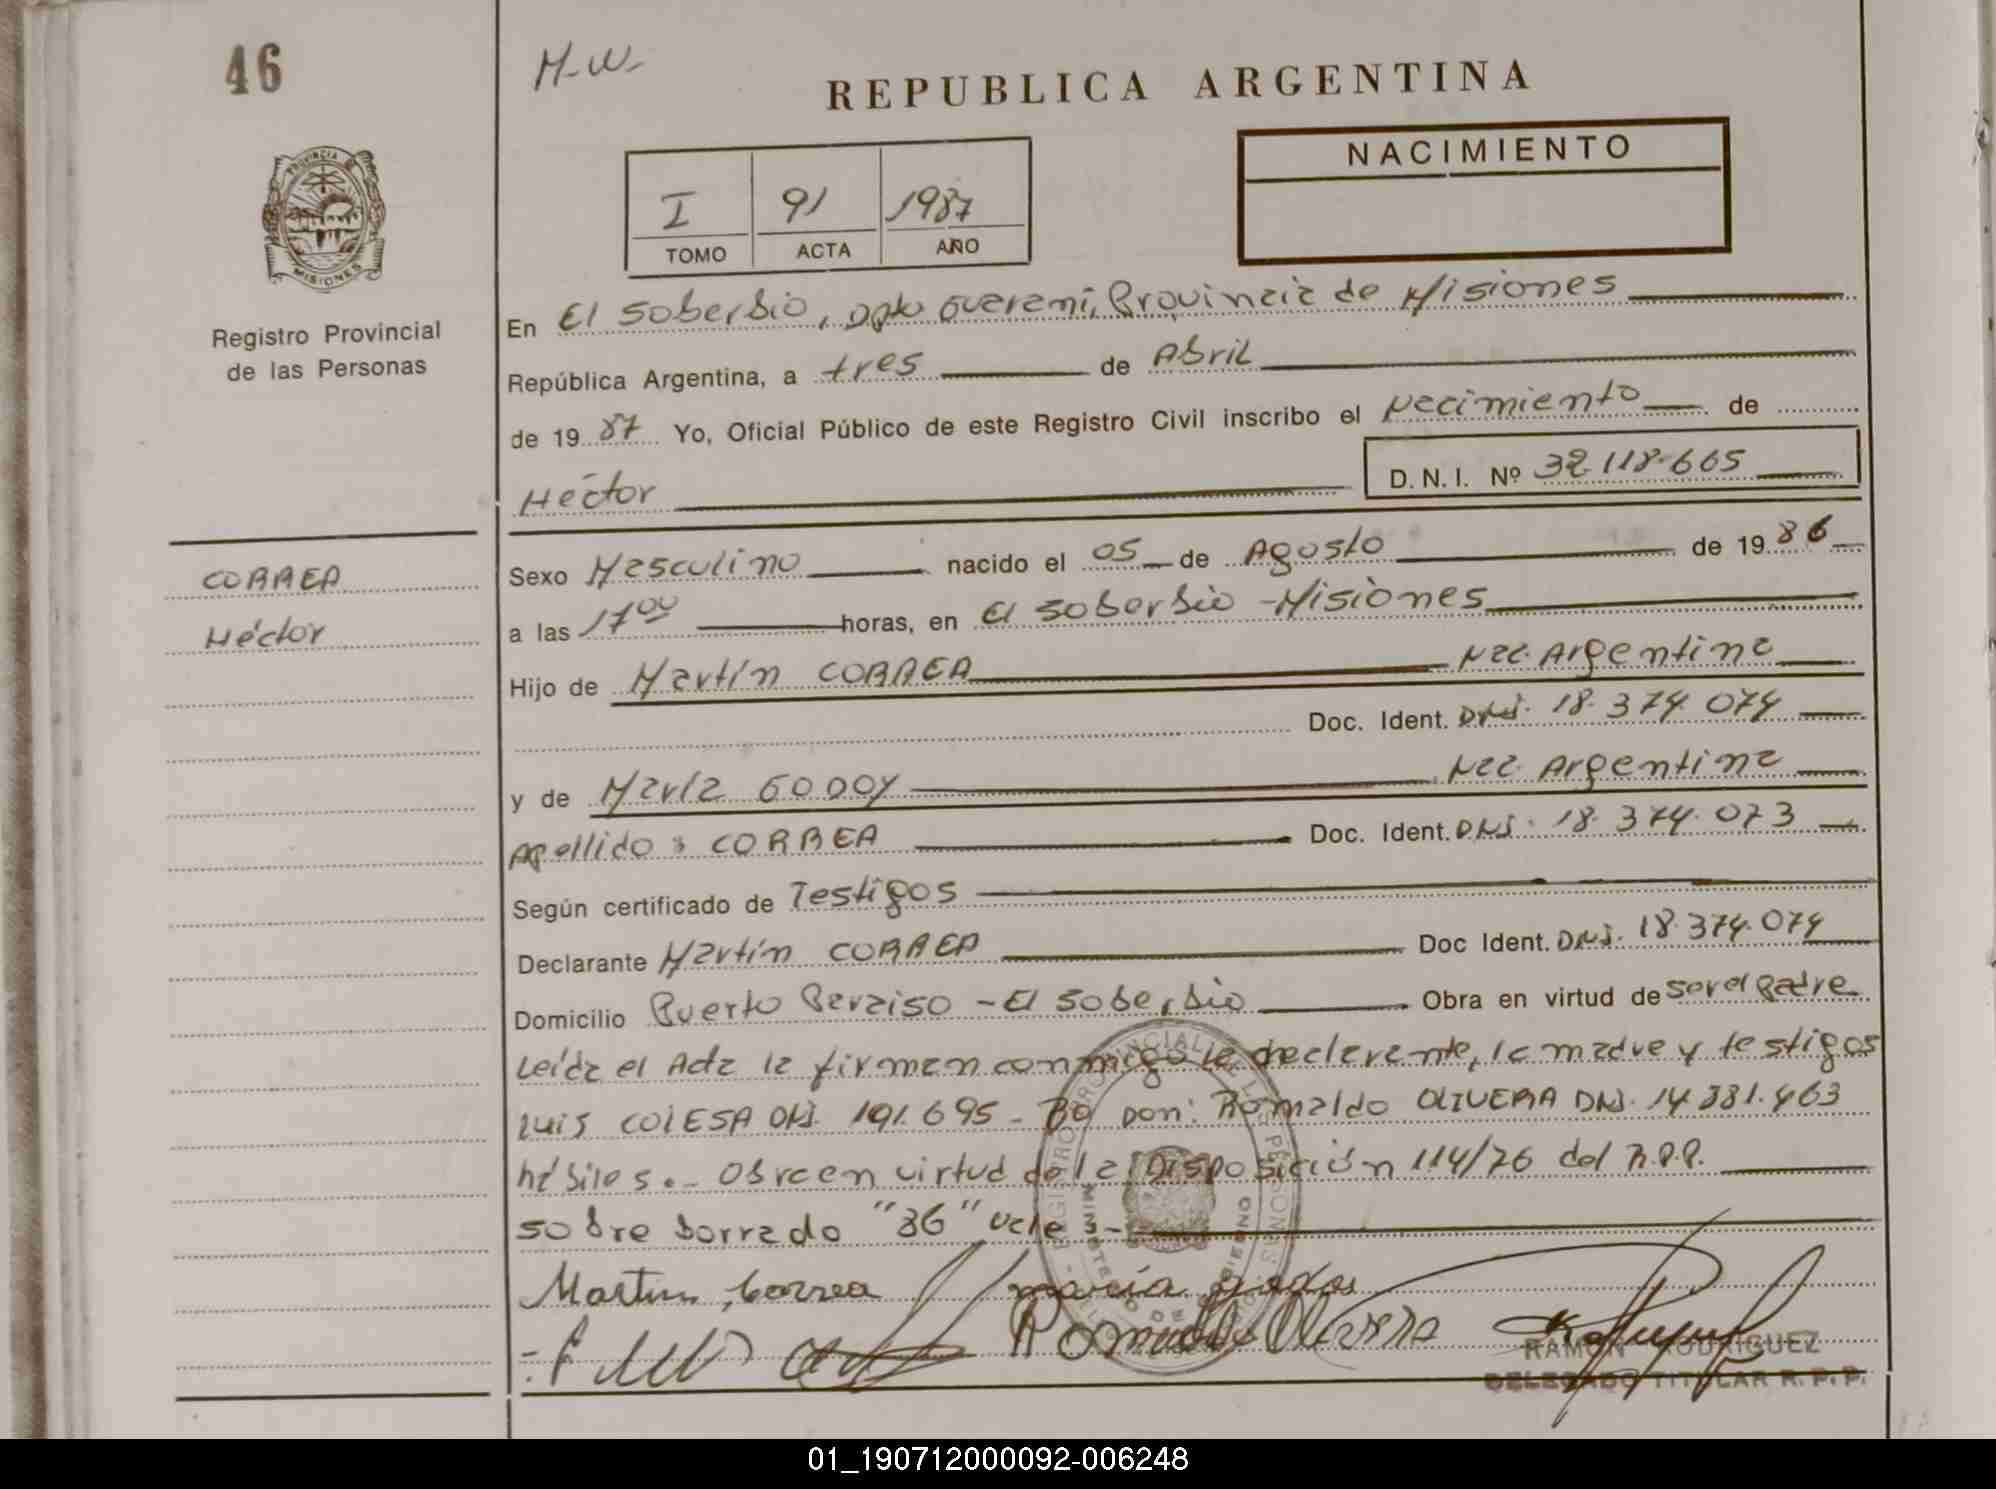 46
M-W-
REPUBLICA ARGENTINA
NACIMIENTO
I 91 1987
TOMO ACTA AÑO
PROVINCIA DE MISIONES
Registro Provincial
de las Personas
En El Soberbio, Dpto Guarani, Provincia de Misiones
República Argentina, a tres de Abril
de 19 87 Yo, Oficial Público de este Registro Civil inscribo el Nacimiento de
Héctor D.N.I. Nº 32.118.665
CORREA
Héctor
Sexo Masculino nacido el 05 de Agosto de 19 86
a las 17 00 horas, en El Soberbio - Misiones
Hijo de Martín CORREA Nac. Argentina
Doc. Ident. DNI. 18.374.074
y de María GODOY Nac Argentina
Apellido: CORREA Doc. Ident. DNI. 18.374.073
Según certificado de Testigos
Declarante Martín CORREA Doc Ident. DNI. 18.374.074
Domicilio Puerto Paraiso - El Soberbio Obra en virtud de ser el Padre
Leída el Acta la firman conmigo le declarante, la madre y testigos
Luis COLESA DNI. 191.695 - Bº Don: Romaldo OLIVERA DNI. 14.881.463
hábiles.- Obra en virtud de la Disposición 114/76 del R.P.P.
sobre borrado "86" vale -
Martin Correa maría godoy
Romualdo Olivera
RAMON RODRIGUEZ
DELEGADO TITULAR R.P.P.
01_190712000092-006248